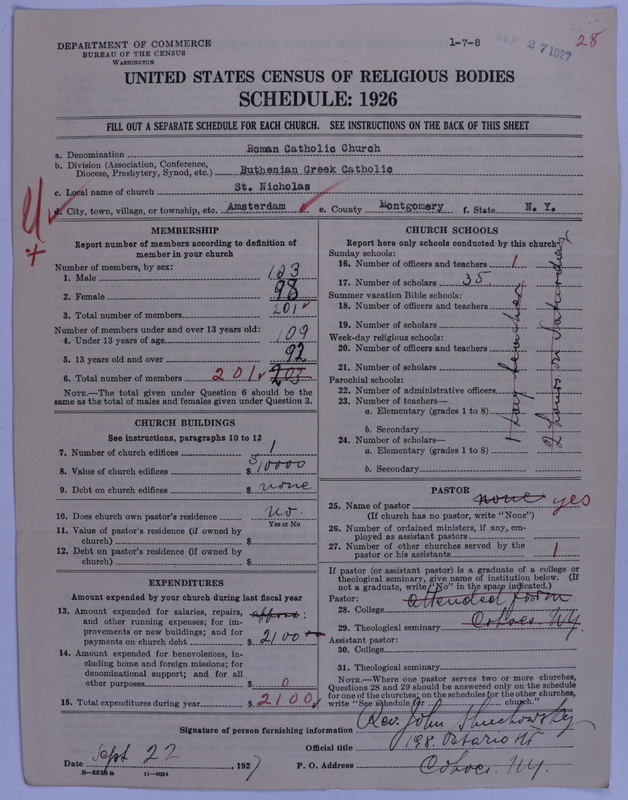 DEPARTMENT OF COMMERCE
BUREAU OF THE CENSUS
WASHINGTON
1-7-8
SEP 27 1927
28
UNITED STATES CENSUS OF RELIGIOUS BODIES
SCHEDULE: 1926
FILL OUT A SEPARATE SCHEDULE FOR EACH CHURCH. SEE INSTRUCTIONS ON THE BACK OF THIS SHEET
a. Denomination Roman Catholic Church
b. Division (Association, Conference, Diocese, Presbytery, Synod, etc.) Ruthenian Greek Catholic
c. Local name of church St. Nicholas
d. City, town, village, or township, etc. Amsterdam e. County Montgomery f. State N. Y.
MEMBERSHIP
Report number of members according to definition of
member in your church
Number of members, by sex:
1. Male 103
2. Female 98
3. Total number of members 201
Number of members under and over 13 years old:
4. Under 13 years of age 109
5. 13 years old and over 92
6. Total number of members 201 203
NOTE.—The total given under Question 6 should be
same as the total of males and females given under Question 3.
CHURCH BUILDINGS
See instructions, paragraphs 10 to 12
7. Number of church edifices 1
8. Value of church edifices $ 10000
9. Debt on church edifices $ none
10. Does church own pastor's residence no.
Yes or No
11. Value of pastor's residence (if owned by
church) $
12. Debt on pastor's residence (if owned by
church) $
EXPENDITURES
Amount expended by your church during last fiscal year
13. Amount expended for salaries, repairs,
and other running expenses; for im-
provements or new buildings; and for
payments on church debt $ 2100
14. Amount expended for benevolences, in-
cluding home and foreign missions; for
denominational support; and for all
other purposes $ 0
15. Total expenditures during year $ 2100
CHURCH SCHOOLS
Report here only schools conducted by this church
Sunday schools:
16. Number of officers and teachers 1
17. Number of scholars 35
Summer vacation Bible schools:
18. Number of officers and teachers
19. Number of scholars
Week-day religious schools:
20. Number of officers and teachers
21. Number of scholars
Parochial schools:
22. Number of administrative officers
23. Number of teachers—
a. Elementary (grades 1 to 8)
b. Secondary
24. Number of scholars—
a. Elementary (grades 1 to 8)
b. Secondary
1 lay teacher
2 hours on Saturday
PASTOR
25. Name of pastor none yes
(If church has no pastor, write "None")
26. Number of ordained ministers, if any, em-
ployed as assistant pastors
27. Number of other churches served by the
pastor or his assistants 1
If pastor (or assistant pastor) is a graduate of a college or
theological seminary, give name of institution below. (If
not a graduate, write "No" in the space indicated.)
Pastor: attended from
28. College
29. Theological seminary Cohoes. N.Y.
Assistant pastor:
30. College
31. Theological seminary
NOTE.—Where one pastor serves two or more churches,
Questions 28 and 29 should be answered only on the schedule
for one of the churches; on the schedules for the other churches,
write "See schedule for church."
Signature of person furnishing information Rev. John
Official title 198. Ontario St
Date Sept 22, 1927 P. O. Address Cohoes. N.Y.
8-5518 a 11-9054